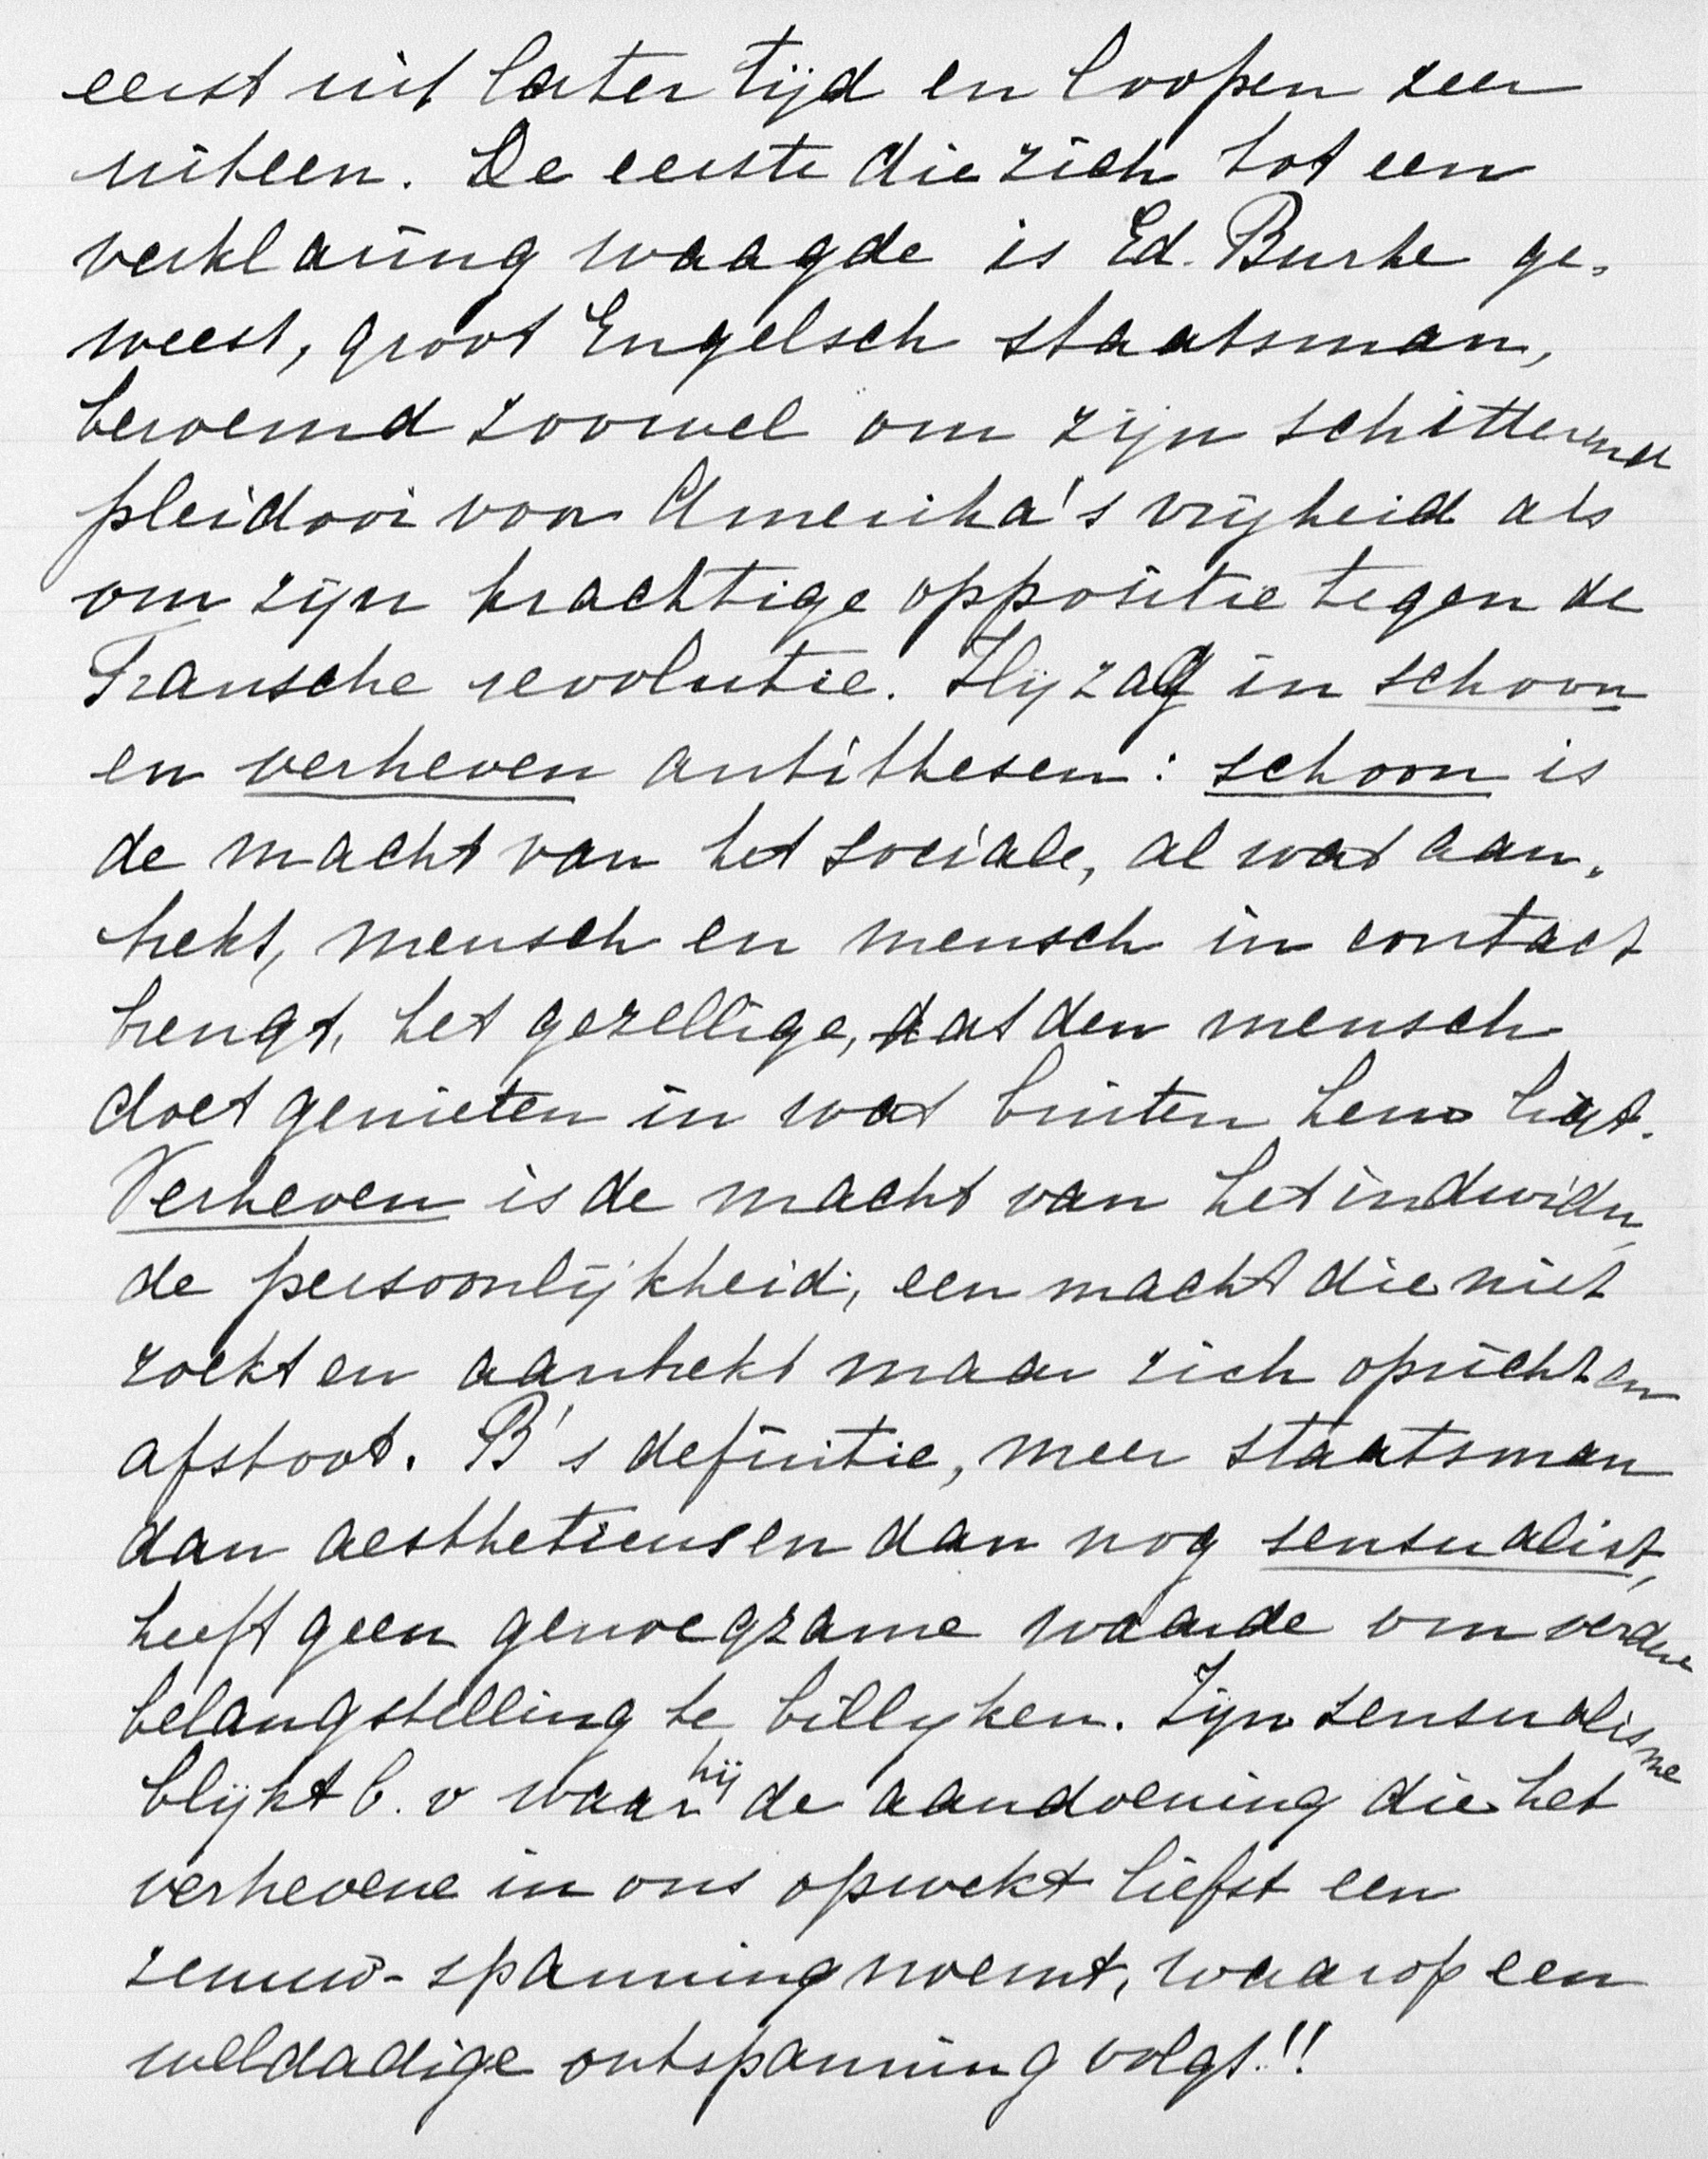 eerst uit later tijd en loopen zeer
uiteen. De eerste die zich tot een
verklaring waagde is Ed. Burke ge-
weest, groot Engelsch staatsman,
beroemd zoowel om zijn schitterend
pleidooi voor Amerika's vrijheid als
om zijn krachtige oppositie tegen de
Fransche revolutie. Hij zag in schoon
en verheven antithesen: schoon is
de macht van het sociale, al wat aan-
trekt, mensch en mensch in contact
brengt, het gezellige, dat den mensch
doet genieten in wat buiten hem ligt.
Verheven is de macht van het individu,
de persoonlijkheid, een macht die niet
zoekt en aantrekt maar zich opricht en
afstoot. B's definitie, meer staatsman
dan aestheticus en dan nog sensualist,
heeft geen genoegzame waarde om verdere
belangstelling te billyken. Zijn sensualisme
blijkt b.v waar hij de aandoening die het
verhevene in ons opwekt liefst een
zenuw-spanning noemt, waarop een
weldadige ontspanning volgt!!